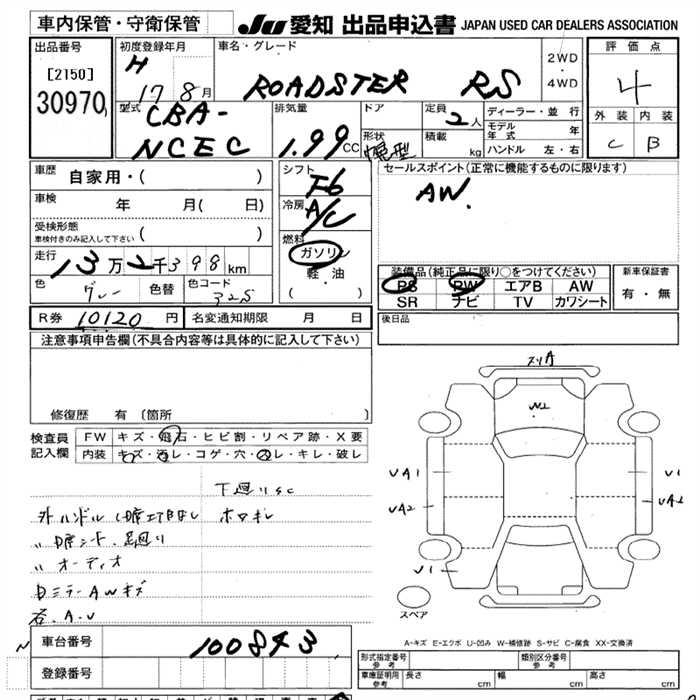 車内保管・守衛保管
JU 愛知 出品申込書 JAPAN USED CAR DEALERS ASSOCIATION
出品番号
[2150]
30970
初度登録年月
H 17 8月
車名・グレード
ROADSTER RS
2WD
・
4WD
評価点
4
外装 内装
C B
型式
CBA-
NCEC
排気量
1.99 CC
ドア
形状
幌型
定員
2人
積載
kg
ディーラー・並行
モデル年式 年
ハンドル 左・右
車歴
自家用・( )
車検
年 月( 日)
受検形態
車検付きのみ記入して下さい ( )
走行
13万2千398km
色
グレー
色替
色コード
32S
シフト
F6
冷房
A/C
燃料
ガソリン
軽・油
( )
セールスポイント(正常に機能するものに限ります)
AW.
装備品(純正品に限り○をつけてください)
PS PW エアB AW
SR ナビ TV カワシート
新車保証書
有・無
R券 10120 円 名変通知期限 月 日
後日品
注意事項申告欄(不具合内容等は具体的に記入して下さい)
修復歴 有 〔箇所 〕
検査員
記入欄
FW キズ・飛石・ヒビ割・リペア跡・X要
内装 キズ・汚レ・コゲ・穴・スレ・キレ・破レ
下廻りSC
外ハンドル
〃
〃 オーディオ
Dミラー AWキズ
各.A.U
スリA
UA1
UA2
U1
U1
UA2
スペア
A-キズ E-エクボ U-凹み W-補修跡 S-サビ C-腐食 XX-交換済
車台番号
100843
登録番号
形式指定番号
参考
類別区分番号
参考
車庫証明用
参考
長さ cm 幅 cm 高さ cm